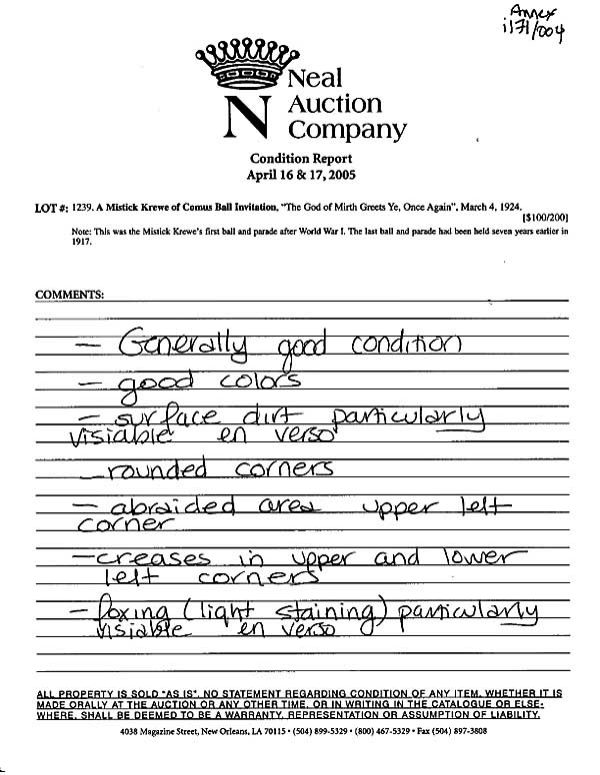 Annex
1171/004
Neal
N Auction
Company
Condition Report
April 16 & 17, 2005
LOT #: 1239. A Mistick Krewe of Comus Ball Invitation, "The God of Mirth Greets Ye, Once Again", March 4, 1924.
[$100/200]
Note: This was the Mistick Krewe's first ball and parade after World War I. The last ball and parade had been held seven years earlier in
1917.
COMMENTS:
- Generally good condition
- good colors
- surface dirt particularly
visiable en verso
- rounded corners
- abraided area upper left
corner
- creases in upper and lower
left corners
- foxing (light staining) particularly
visiable en verso
ALL PROPERTY IS SOLD "AS IS". NO STATEMENT REGARDING CONDITION OF ANY ITEM, WHETHER IT IS
MADE ORALLY AT THE AUCTION OR ANY OTHER TIME, OR IN WRITING IN THE CATALOGUE OR ELSE-
WHERE, SHALL BE DEEMED TO BE A WARRANTY, REPRESENTATION OR ASSUMPTION OF LIABILITY.
4038 Magazine Street, New Orleans, LA 70115 • (504) 899-5329 • (800) 467-5329 • Fax (504) 897-3808